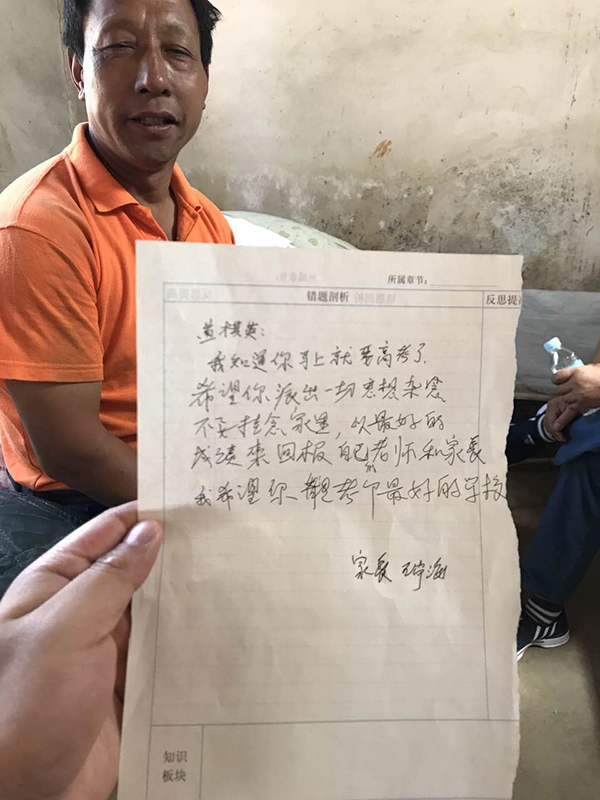 所属章节：
错题剖析
反思提高
黄棋英：
我知道你马上就要高考了
希望你派出一切思想杂念
不要挂念家里，以最好的
成绩来回报自己老师和家长
我希望你能考个最好的学校
家长 海
知识
板块